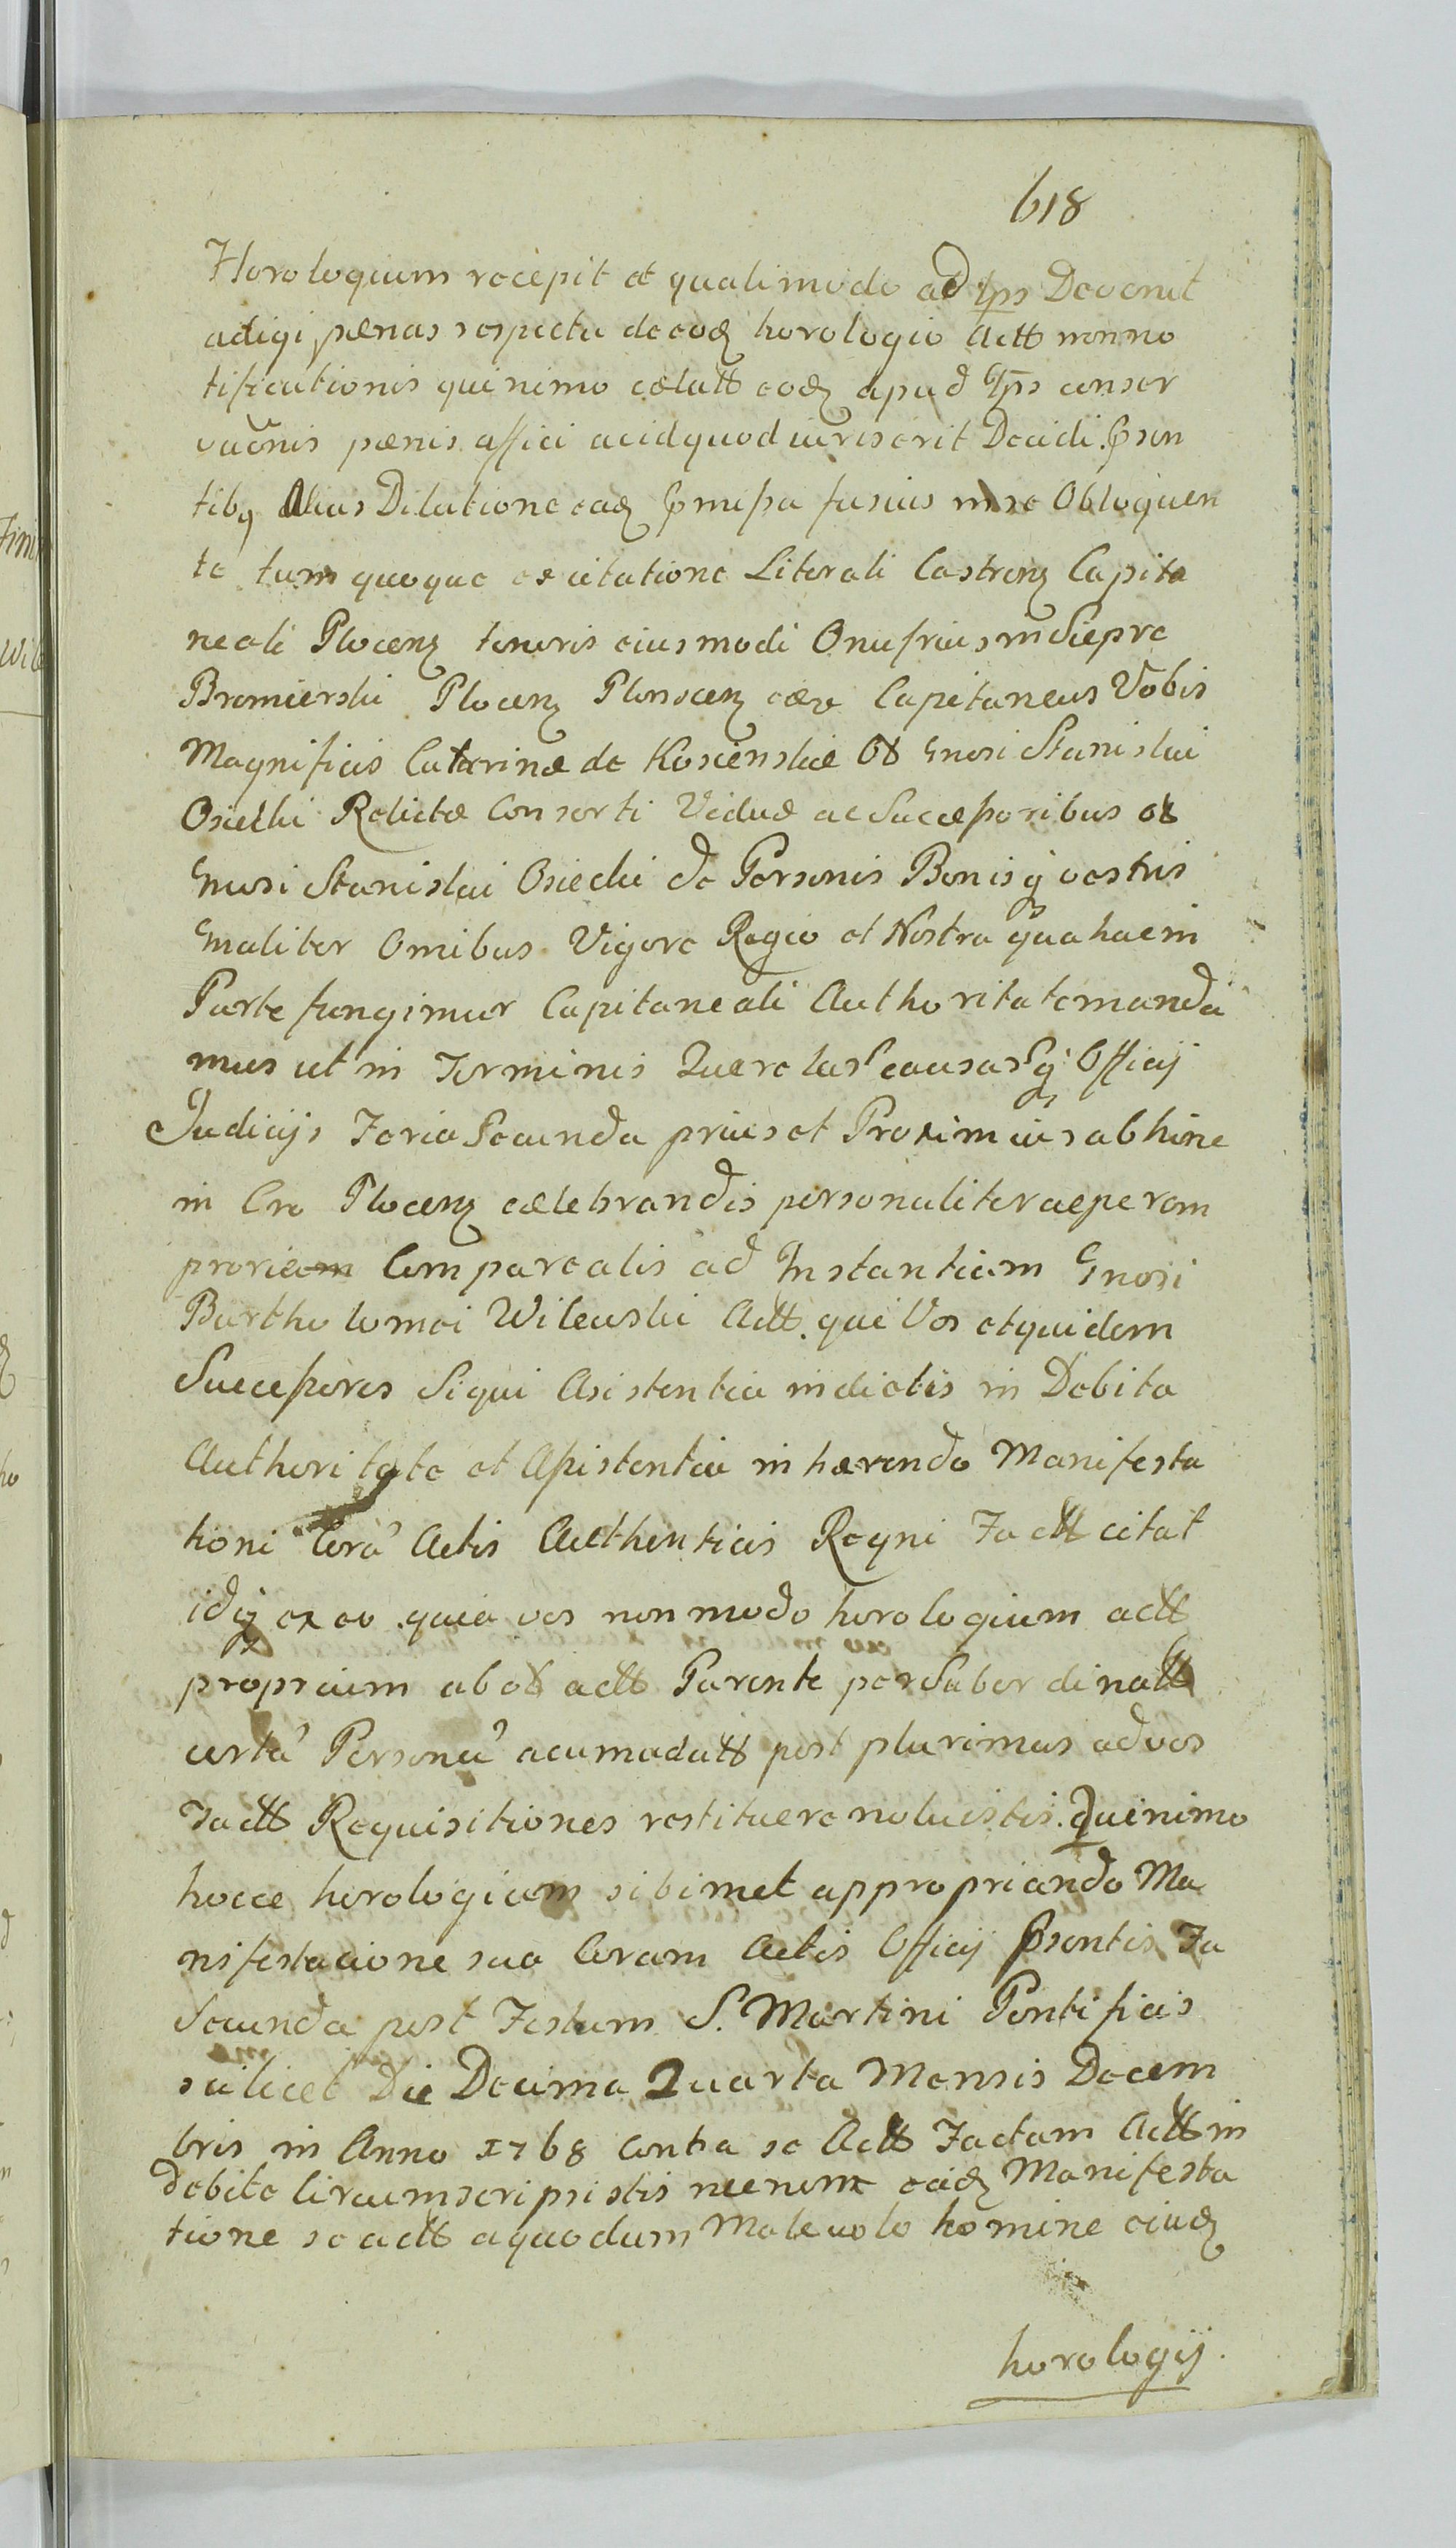 618
Horologium recepit et qualimodo ad Ips Devenit
adigi pœnas respectu de eodȝ horologio Actt non no
tificationis quinimo cœlatt eodȝ apud Ips conser
vaõnis pœnis affici ac id quod iuris erit Decidi. Pœn
tibq Alias Dilatione eadȝ Pmissa fusius in se Obloquen
te tum quoque ex citatione Literali Castrenȝ Capita
neali Plocenȝ tenoris eiusmodi Onufrius in Siepre
Bromierski Plocenȝ Plonscenȝ cær Capitaneus Vobis
Magnificis Catarinæ de Kosienskie Ol Gnosi Stanislai
Osiecki Relictæ Consorti Viduæ ac Successoribus ol
Gnosi Stanislai Osiecki de Personis Bonisq vestris
Gnaliter Omibus Vigore Regio et Nostra qua hac in
Parte fungimur Capitaneali Authoritate manda
mus ut in Terminis Querelar causarq Officij
Judicijs Feria Secunda prius et Proximius ab hinc
in Cro Plocenȝ cœlebrandis personaliter ac perem
prorie Compareatis ad Instantiam Gnosi
Bartholomei Wilewski Actt. qui Vos et quidem
Successores Siqui Asistentia in dictis in Debita
Authoritate et Assistentia in hærendo Manifesta
tioni Corã Actis Authenticis Regni Factt citat
idq ex eo quia vos non modo horologium actt
proprium ab ol actt Parente per Subordinatt
certã Personã acumodatt post plurimas ad vos
Factt Requisitiones restituere noluistis. Quinimo
hocce horologium sibimet appropriando Ma
nifestacione sua Coram Actis Officij Psentis Fa
Secunda post Festum S. Martini Pontificis
scilicet Die Decima Quarta Mensis Decem
bris in Anno 1768 Contra se Actt Factam Actt in
debite Circumscripsistis necnon eadȝ Manifesta
tione se actt a quodum Malevolo homine eiudȝ
horologij.